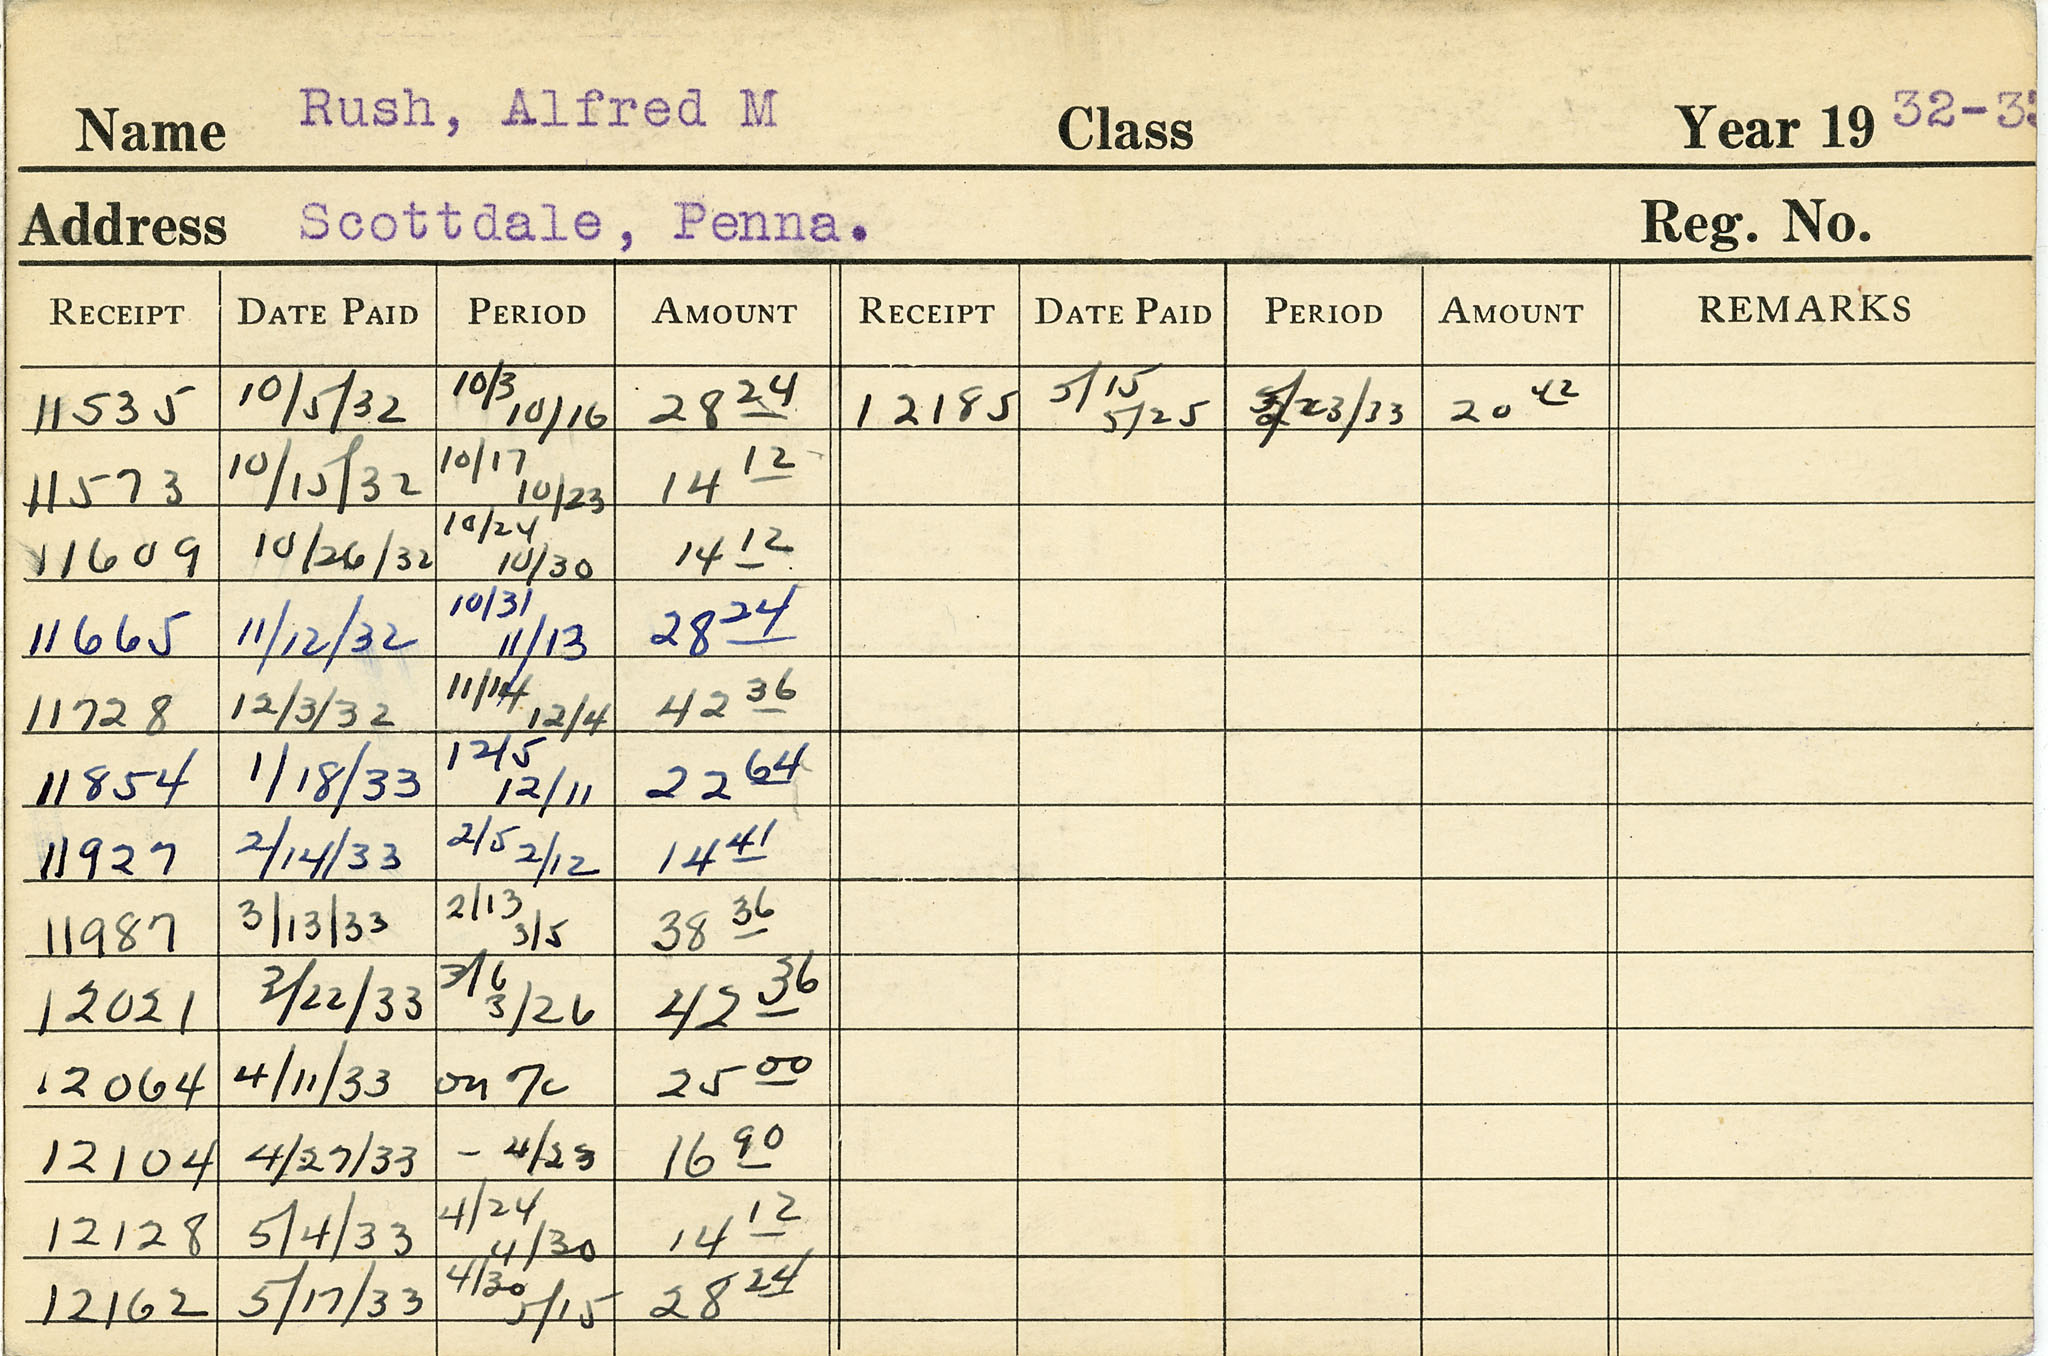 Name Rush, Alfred M Class Year 19 32-33
Address Scottdale, Penna. Reg. No.
RECEIPT DATE PAID PERIOD AMOUNT RECEIPT DATE PAID PERIOD AMOUNT REMARKS
11535 10/5/32 10/3 10/16 28 24 12185 5/15 5/25 /23/33 20 42
11573 10/15/32 10/17 10/23 14 12
11609 10/26/32 10/24 10/30 14 12
11665 11/12/32 10/31 11/13 28 24
11728 12/3/32 11/14 12/4 42 36
11854 1/18/33 12/5 12/11 22 64
11927 2/14/33 2/5 2/12 14 41
11987 3/13/33 2/13 3/5 38 36
12021 3/22/33 3/6 3/26 42 36
12064 4/11/33 on 25 00
12104 4/27/33 - 4/23 16 90
12128 5/4/33 4/24 4/30 14 12
12162 5/17/33 4/30 5/15 28 24